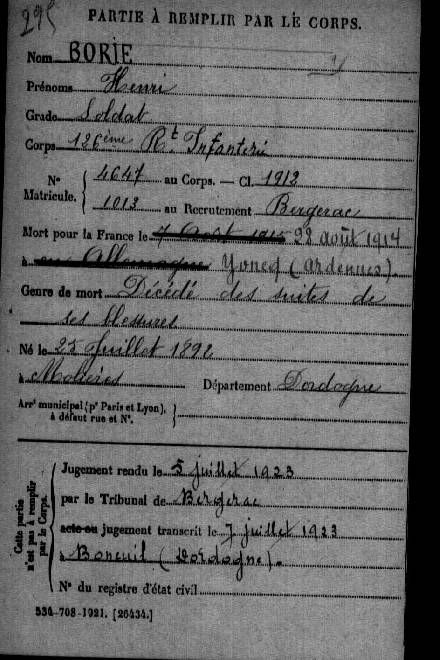 295
PARTIE À REMPLIR PAR LE CORPS.
Nom BORIE
Prénoms Henri
Grade Soldat
Corps 126ème Rt Infanterie
N° Matricule. { 4647 au Corps. — Cl. 1912
1013 au Recrutement Bergerac
Mort pour la France le 7 Août 1915 28 août 1914
à en Allemagne Yoncq (Ardennes).
Genre de mort Décédé des suites de
ses blessures
Né le 25 Juillet 1892
à Molières Département Dordogne
Arrt municipal (pr Paris et Lyon), à défaut rue et N°.
Cette partie n'est pas à remplir par le Corps.
Jugement rendu le 5 juillet 1923
par le Tribunal de Bergerac
acte ou jugement transcrit le 7 juillet 1923
à (Dordogne).
N° du registre d'état civil
534-708-1921. [26434.]